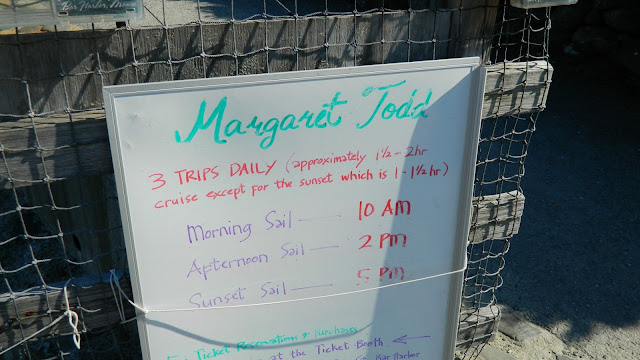 Bar Harbor, Maine
Margaret Todd
3 TRIPS DAILY (approximately 1½ - 2hr
cruise except for the sunset which is 1 - 1½ hr)
Morning Sail — 10 AM
Afternoon Sail — 2 PM
Sunset Sail — 5 PM
Ticket Reservation & Purchasing
at the Ticket Booth ←
Bar Harbor